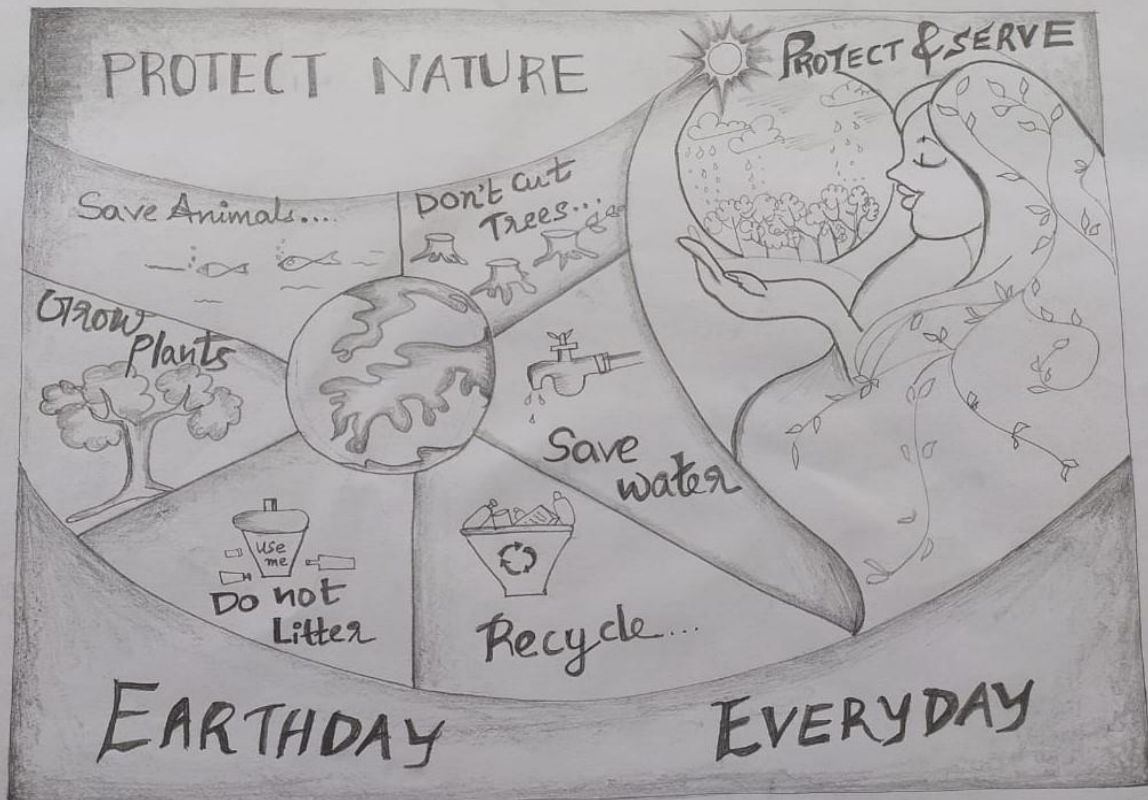 PROTECT NATURE
PROTECT & SERVE
Save Animals....
Don't cut
Trees...
Grow
Plants
Save
water
use
me
Do not
Litter
Recycle...
EARTHDAY
EVERYDAY